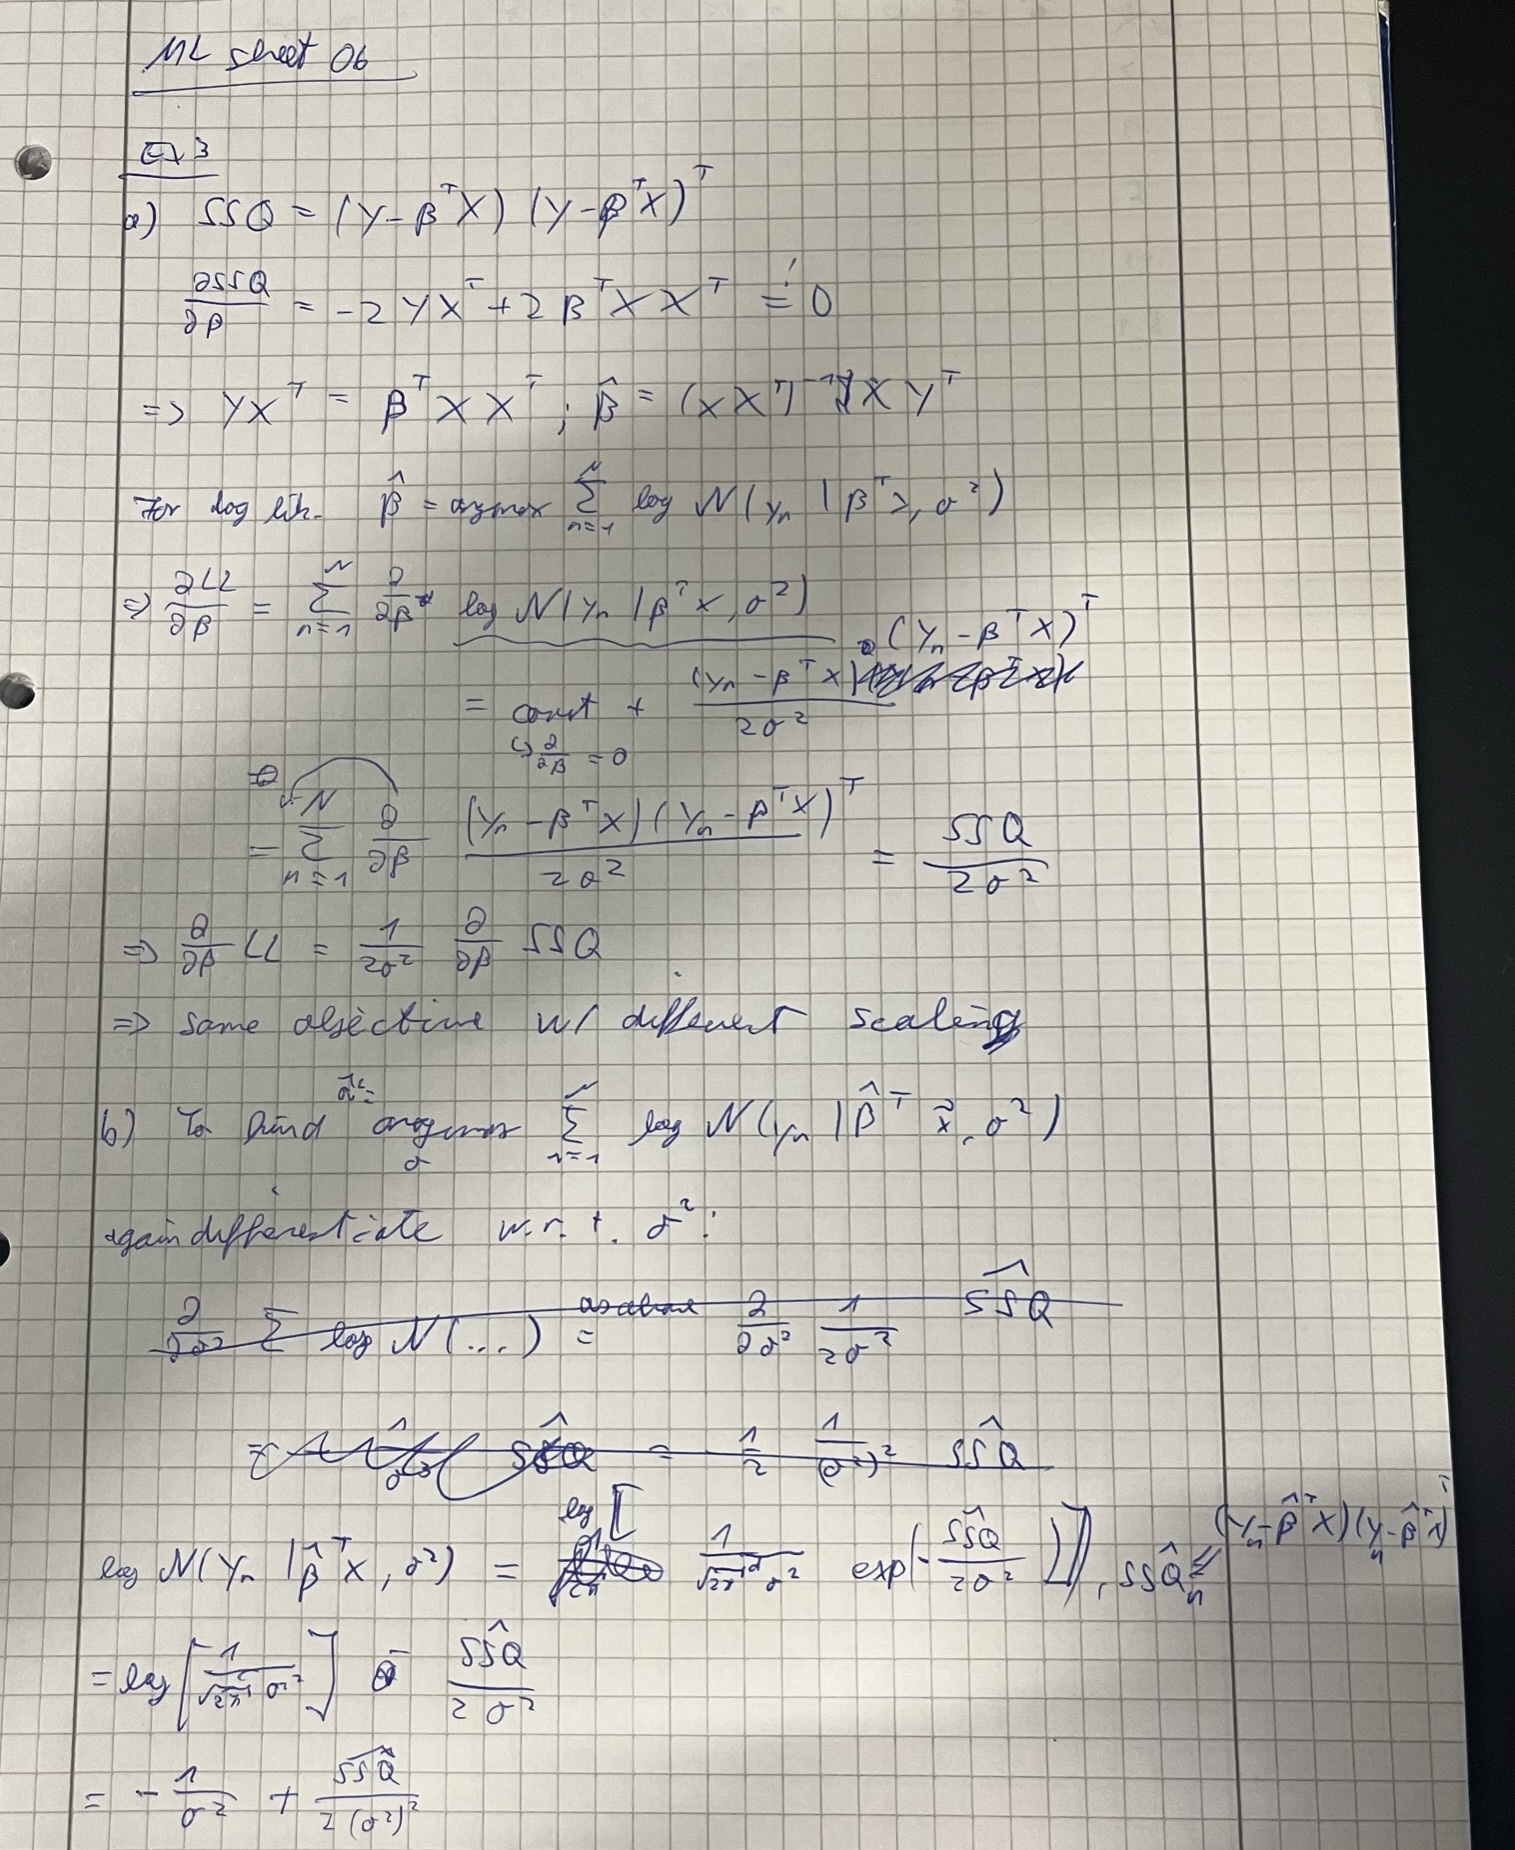 ML sheet 06
Ex 3
a) SSQ = (Y - β^T X) (Y - β^T X)^T
∂SSQ/∂β = -2 Y X^T + 2 β^T X X^T =! 0
=> Y X^T = β^T X X^T ; β̂ = (X X^T)^-1 X Y^T
For log lik. β̂ = argmax Σ_{n=1}^N log N(y_n | β^T x, σ²)
=> ∂LL/∂β = Σ_{n=1}^N ∂/∂β log N(y_n | β^T x, σ²)
= const + (y_n - β^T x) · (y_n - β^T X)^T / 2σ²
↳ ∂/∂β = 0
= Σ_{n=1}^N ∂/∂β (y_n - β^T X) (y_n - β^T X)^T / 2σ² = SSQ / 2σ²
=> ∂/∂β LL = 1/2σ² ∂/∂β SSQ
=> same objective w/ different scaling
b) To find σ̂² = argmax_σ Σ_{n=1}^N log N(y_n | β̂^T x⃗, σ²)
again differentiate w.r.t. σ²:
∂/∂σ² Σ log N(...) = as above ∂/∂σ² 1/2σ² SSQ^
= SSQ^ = 1/2 1/(σ²)² SSQ^
log N(y_n | β̂^T x, σ²) = log [ 1/√2π σ² exp(- SSQ^ / 2σ²) ] , SSQ^_n = (y_n - β̂^T X) (y_n - β̂^T X)^T
= log [ 1/√2π σ² ] - SSQ^ / 2σ²
= - 1/σ² + SSQ^ / 2(σ²)²